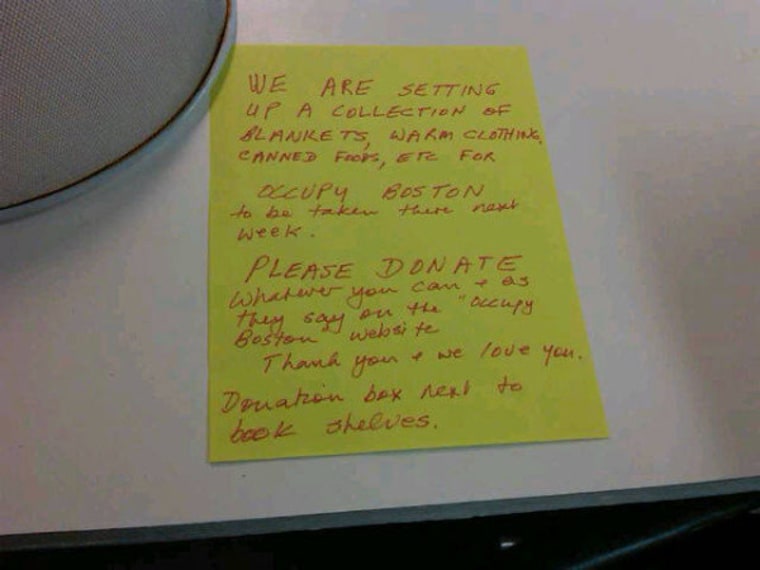 WE ARE SETTING
UP A COLLECTION OF
BLANKETS, WARM CLOTHING,
CANNED FOODS, ETC FOR
OCCUPY BOSTON
to be taken there next
week.
PLEASE DONATE
Whatever you can + as
they say on the "Occupy
Boston" website
Thank you + we love you.
Donation box next to
book shelves.